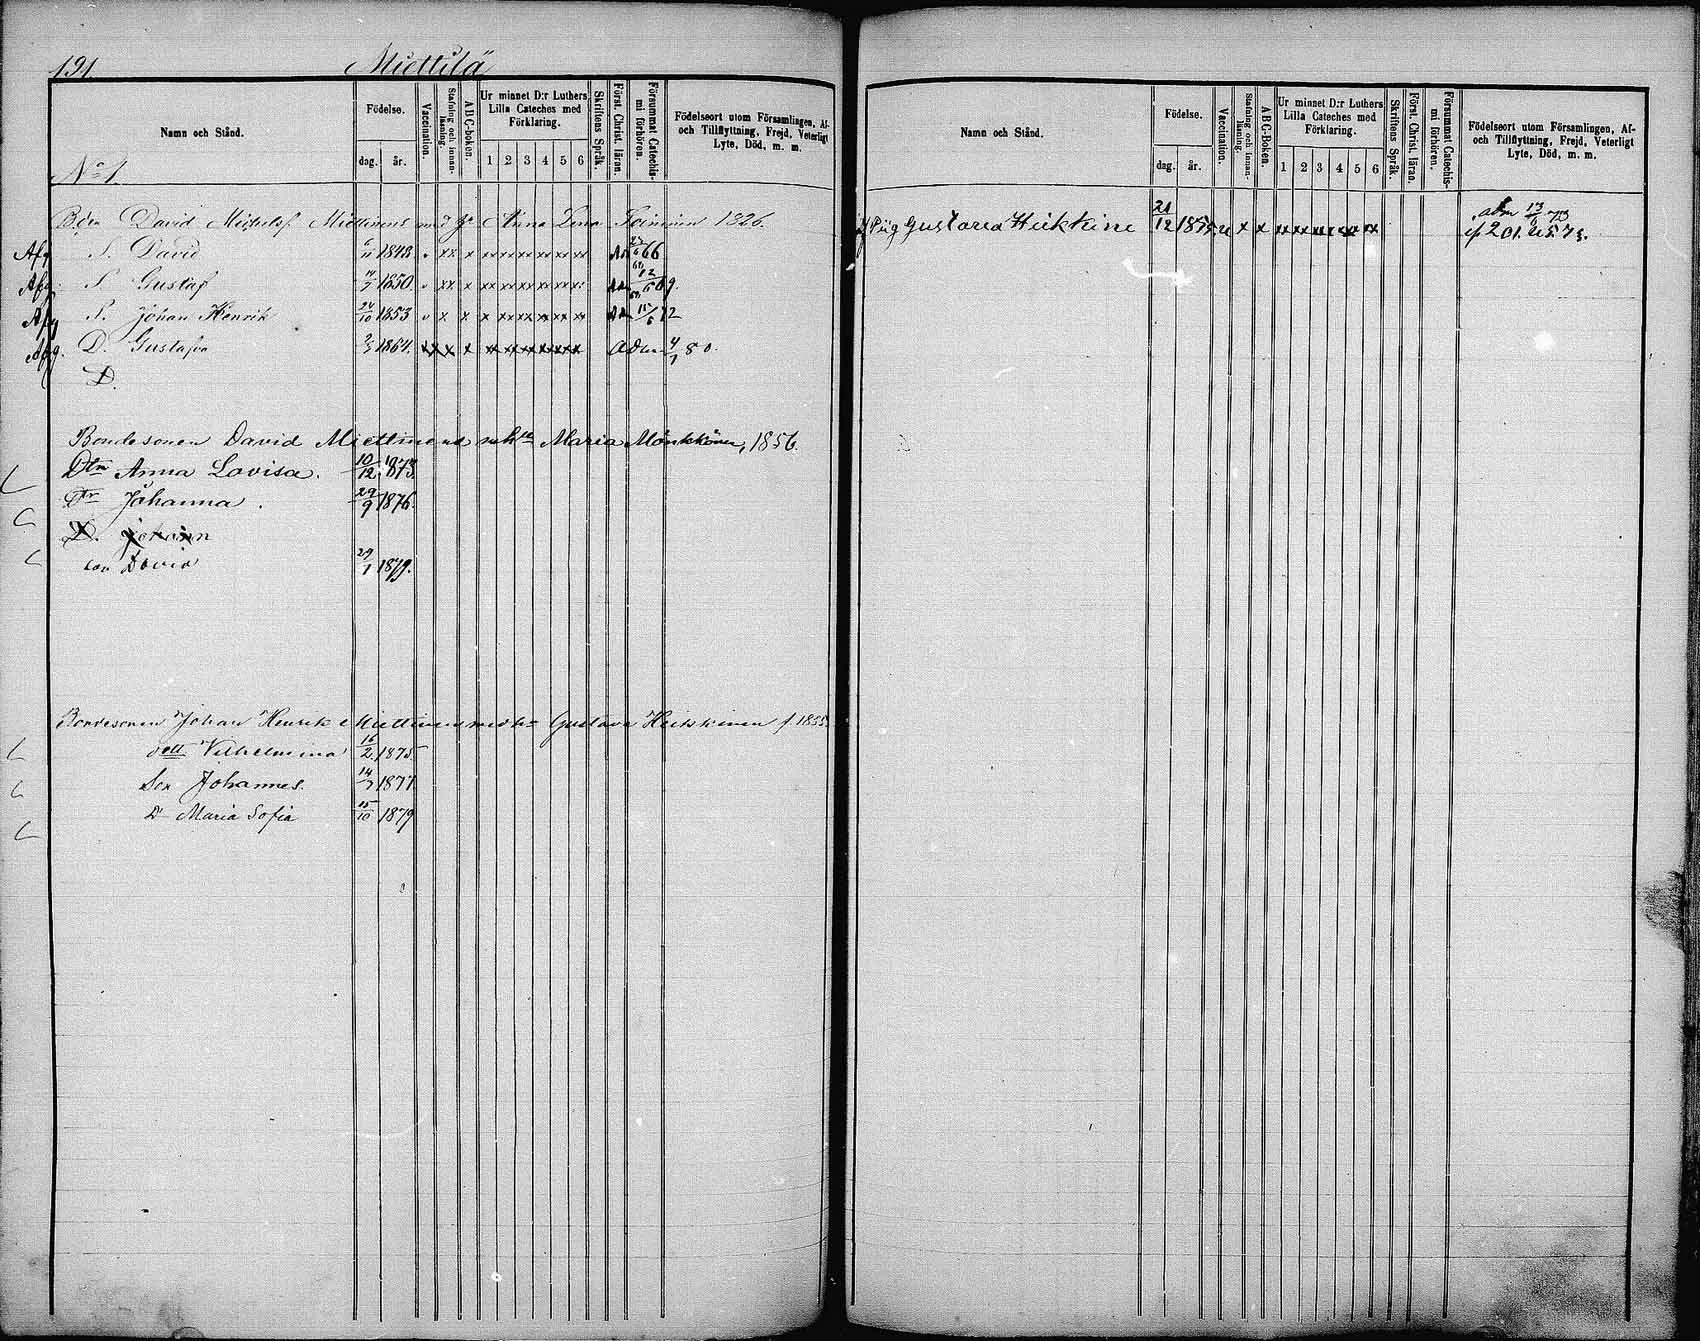 191.
Miettilä
Namn och Stånd.
Födelse.
dag.
år.
Vaccination.
Stafning och innanläsning.
ABC-boken.
Ur minnet D:r Luthers
Lilla Cateches med
Förklaring.
1 2 3 4 5 6
Skriftens Språk.
Först. Christ. läran.
Försummat Catechis-
mi förhören.
Födelseort utom Församlingen, Af-
och Tillflyttning, Frejd, Veterligt
Lyte, Död, m. m.
No 1.
David Miettinens med Anna Lena Toininen 1826.
Afg S. David 6/11 1848 x x x x x x x x x 66
Afg S. Gustaf 14/7 1850. x x x x x x x x x 12/6 69.
Afg S. Johan Henrik 24/10 1853 x x x x x x x x 15/6 72
Afg. D. Gustafva 2/3 1864. x x x x x x x x x Adm 4/7 80.
D.
Bondesonen David Miettinens Maria Mönkkönen, 1856.
Dtr Anna Lovisa. 10/12 1873.
Dtr Johanna. 29/9 1876.
D. Johann
son David 29/1 1879.
Bondesonen Johan Henrik Miettinens med Gustava Heikkinen f. 1855.
dott Vilhelmina 16/2 1875
Son Johannes. 14/7 1877
D Maria Sofia 15/10 1879
Namn och Stånd.
Födelse.
dag.
år.
Vaccination.
Stafning och innanläsning.
ABC-Boken.
Ur minnet D:r Luthers
Lilla Cateches med
Förklaring.
1 2 3 4 5 6
Skriftens Språk.
Först. Christ. läran.
Försummat Catechis-
mi förhören.
Födelseort utom Församlingen, Af-
och Tillflyttning, Frejd, Veterligt
Lyte, Död, m. m.
Pig Gustava Heikkine 21/12 1855. x x x x x x x x adm 13/6 73